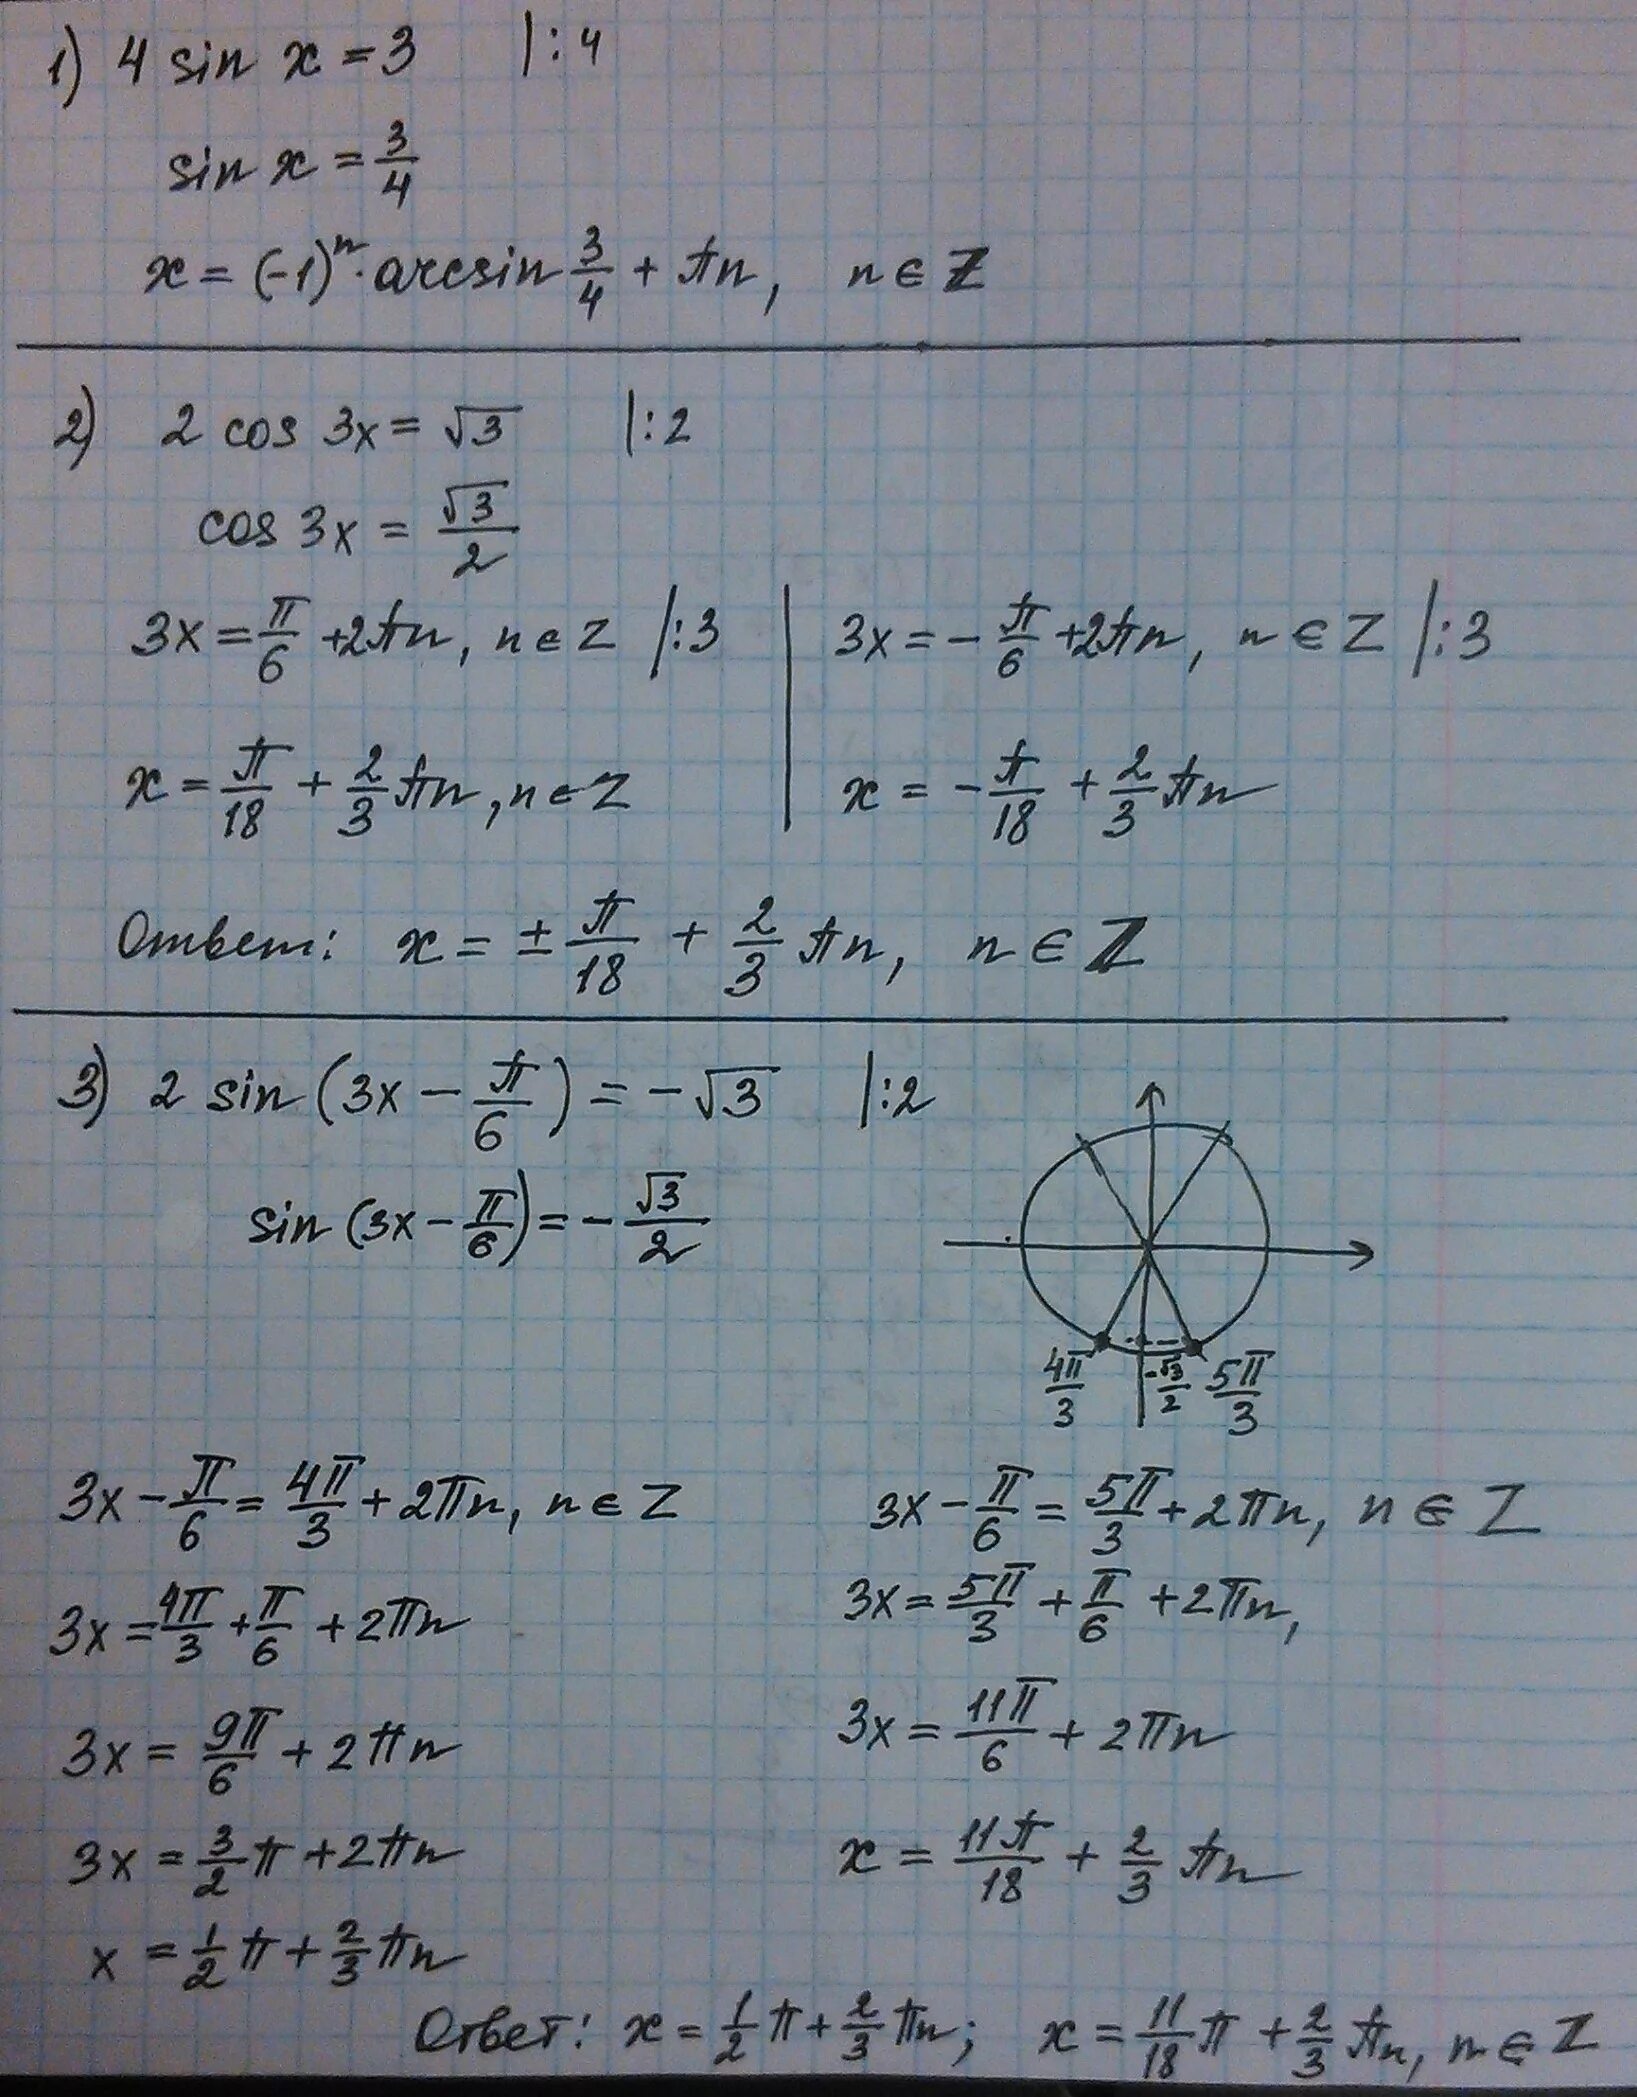 1) 4 sin x = 3 |:4
sin x = 3/4
x = (-1)ⁿ · arcsin 3/4 + πn, n ∈ Z
2) 2 cos 3x = √3 |:2
cos 3x = √3/2
3x = π/6 + 2πn, n ∈ Z |:3
x = π/18 + 2/3 πn, n ∈ Z
3x = - π/6 + 2πn, n ∈ Z |:3
x = - π/18 + 2/3 πn
Ответ: x = ± π/18 + 2/3 πn, n ∈ Z
3) 2 sin (3x - π/6) = -√3 |:2
sin (3x - π/6) = - √3/2
4π/3 -√3/2 5π/3
3x - π/6 = 4π/3 + 2πn, n ∈ Z
3x = 4π/3 + π/6 + 2πn
3x = 9π/6 + 2πn
3x = 3/2 π + 2πn
x = 1/2 π + 2/3 πn
3x - π/6 = 5π/3 + 2πn, n ∈ Z
3x = 5π/3 + π/6 + 2πn,
3x = 11π/6 + 2πn
x = 11π/18 + 2/3 πn
Ответ: x = 1/2 π + 2/3 πn; x = 11/18 π + 2/3 πn, n ∈ Z